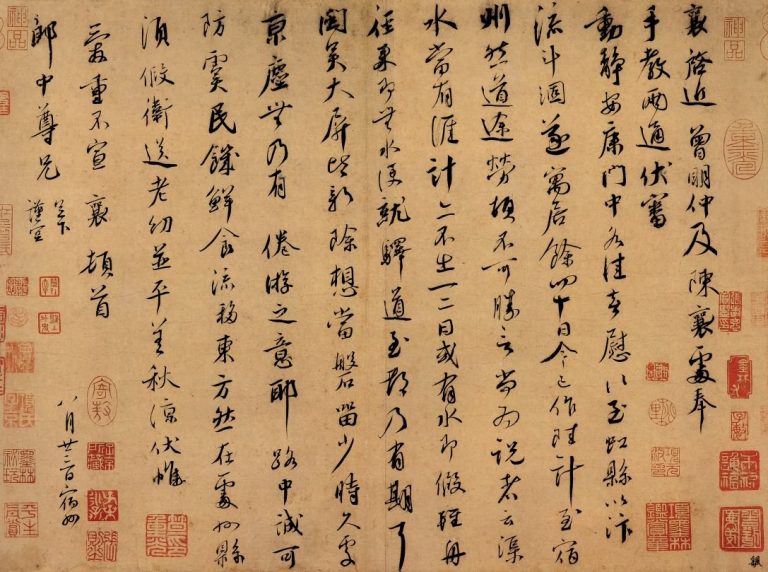 襄啓近曾明仲及陳襄處奉
手教兩通伏審
動靜安康門中各佳喜慰〻至虹縣以汴
流斗涸遂寓居餘四十日今已作陸計至宿
州然道途勞頓不可勝言尚為説者云渠
水當有涯計亦不出一二日或有水即假輕舟
徑來即無水便就驛道至都乃有期耳
閩吳大屏皆新除想當磐留少時久處
京塵無乃有倦游之意耶路中誠可
防窶民饑鮮食流移東方然在處州縣
須假衛送老幼並平善秋涼伏惟
愛重不宣襄頓首
郎中尊兄足下 謹空
八月廿二日宿州